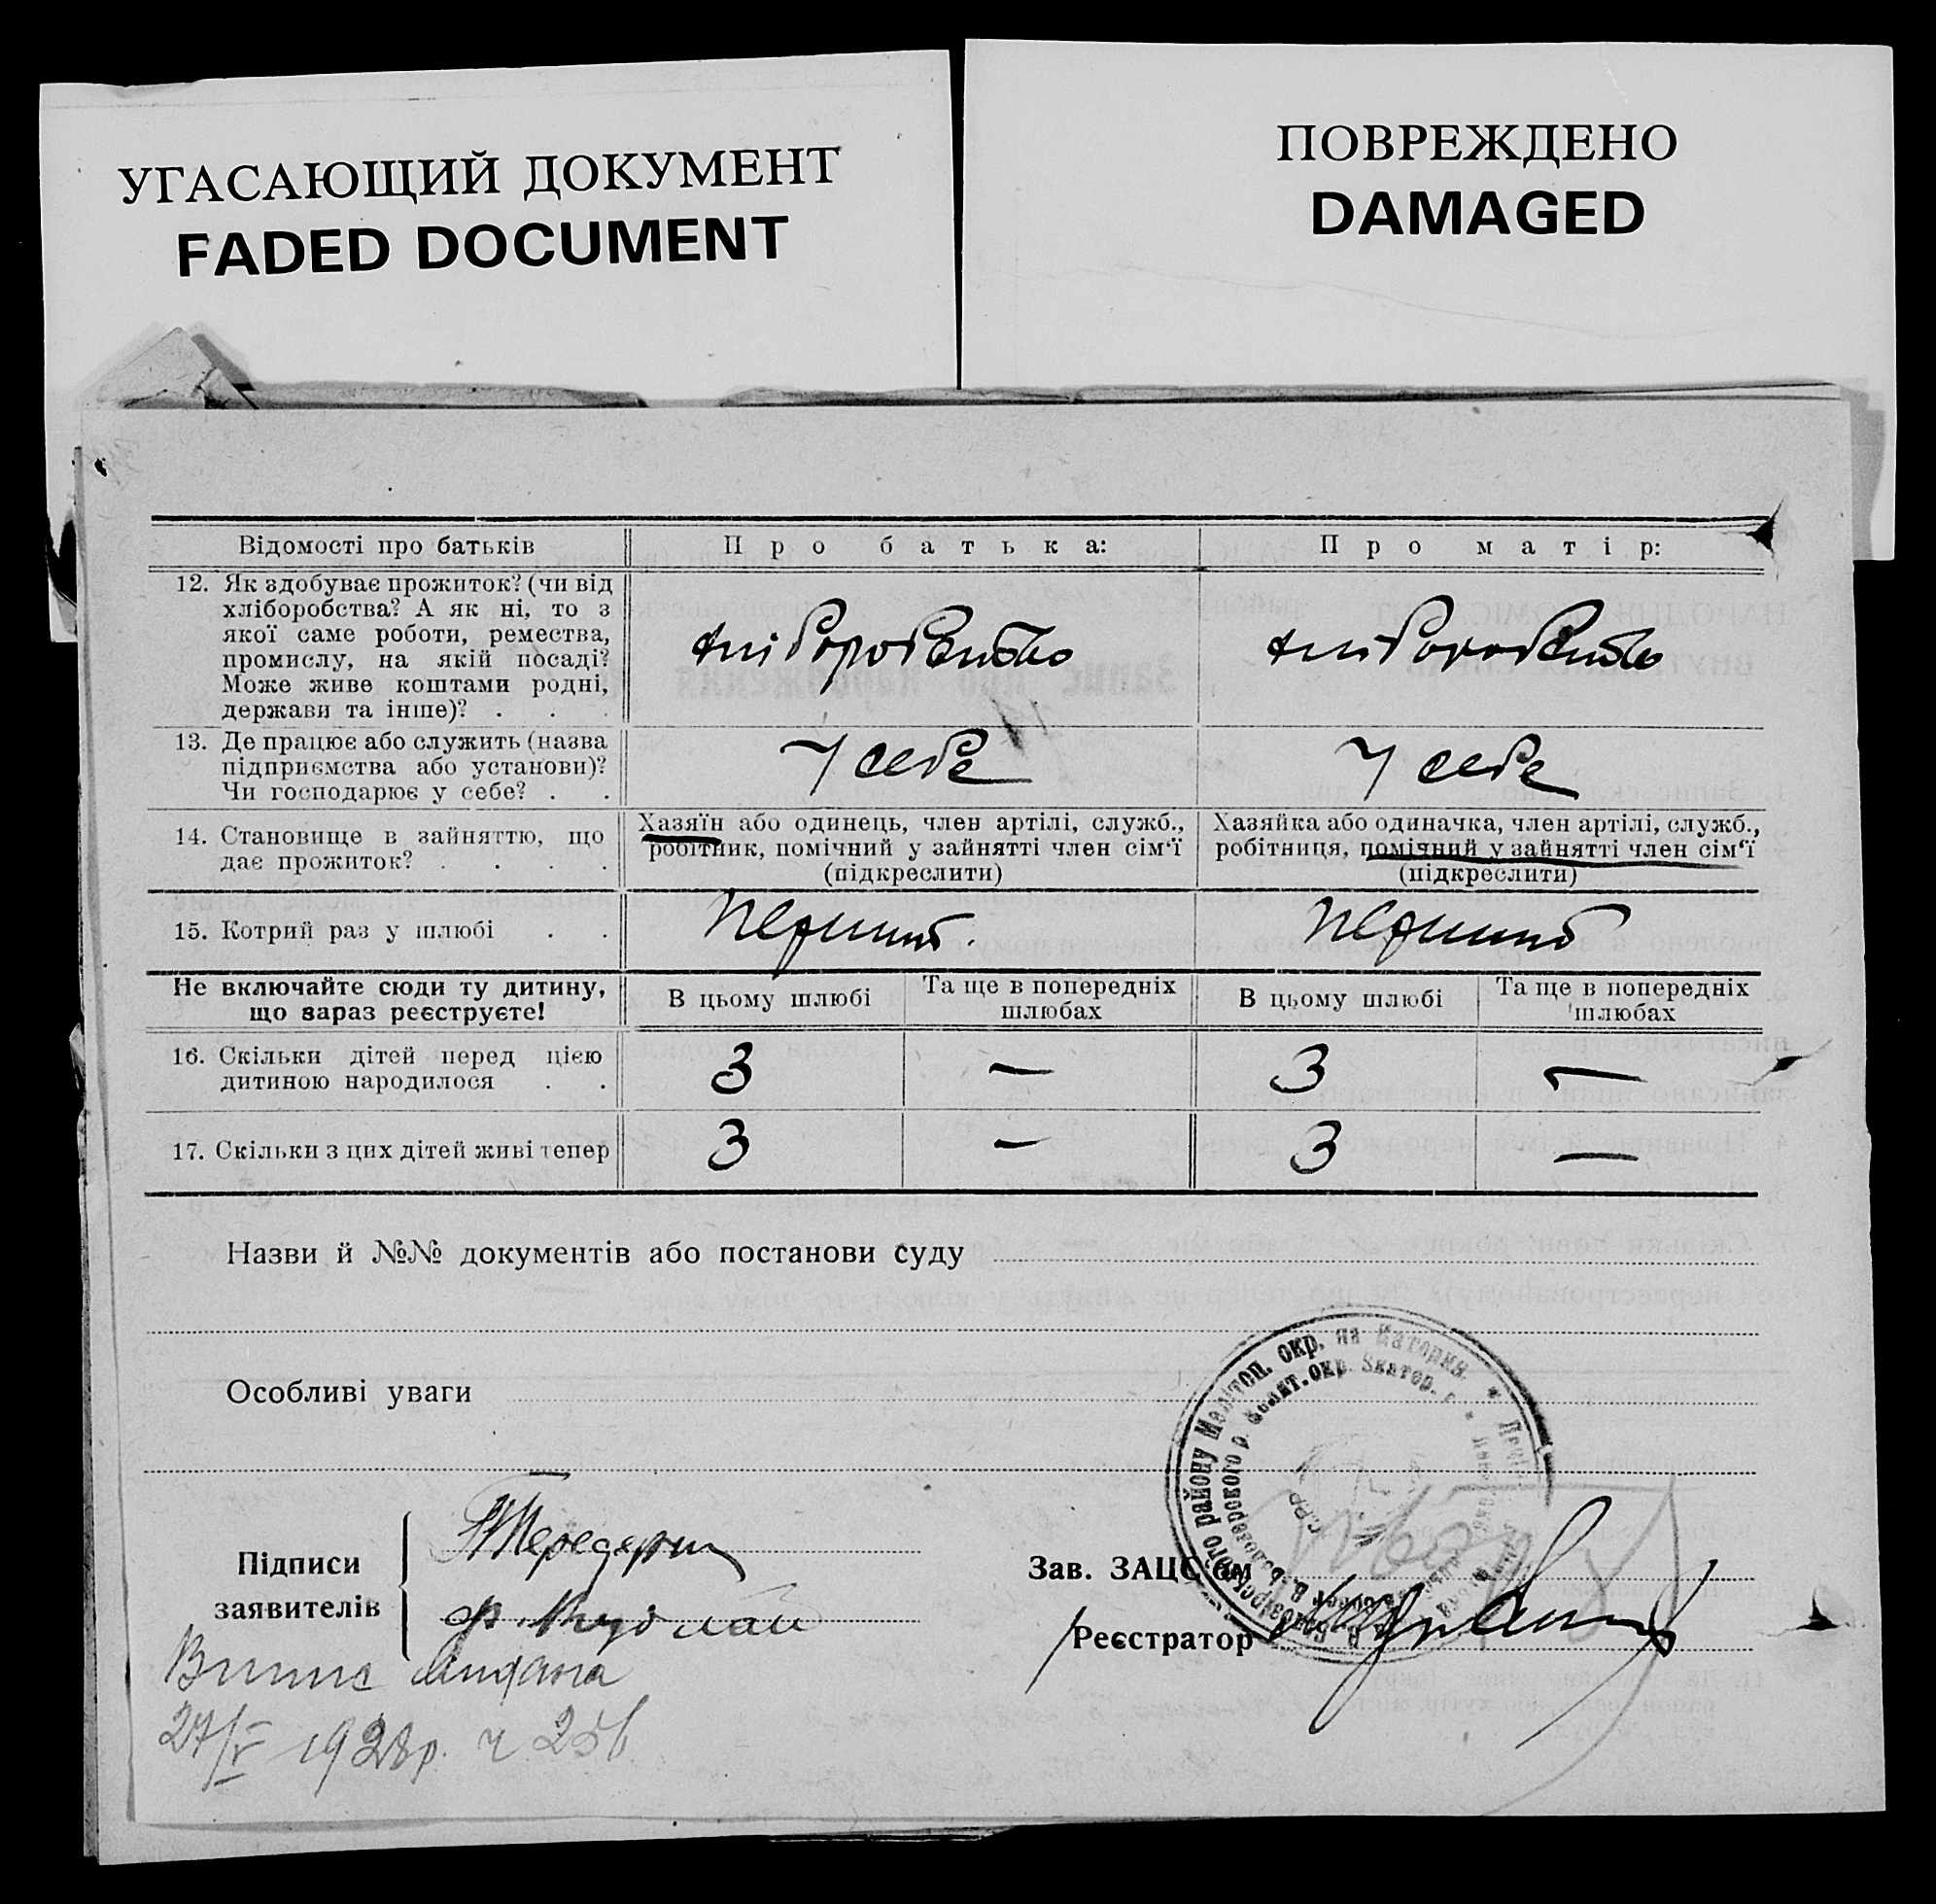 УГАСАЮЩИЙ ДОКУМЕНТ
FADED DOCUMENT
ПОВРЕЖДЕНО
DAMAGED
Відомості про батьків
Про батька:
Про матір:
12. Як здобуває прожиток? (чи від
хліборобства? А як ні, то з
якої саме роботи, ремества,
промислу, на якій посаді?
Може живе коштами родні,
держави та інше)? . . .
хліборобство
хліборобство
13. Де працює або служить (назва
підприємства або установи)?
Чи господарює у себе? . .
У себе
У себе
14. Становище в зайняттю, що
дає прожиток? . . . .
Хазяїн або одинець, член артілі, служб.,
робітник, помічний у зайнятті член сім‘ї
(підкреслити)
Хазяйка або одиначка, член артілі, служб.,
робітниця, помічний у зайнятті член сім‘ї
(підкреслити)
15. Котрий раз у шлюбі . .
Перший
Перший
Не включайте сюди ту дитину,
що зараз реєструєте!
В цьому шлюбі
Та ще в попередніх
шлюбах
В цьому шлюбі
Та ще в попередніх
шлюбах
16. Скільки дітей перед цією
дитиною народилося . .
3
—
3
—
17. Скільки з цих дітей живі тепер
3
—
3
—
Назви й №№ документів або постанови суду
Особливі уваги
району Меліт оп. окр. на Катерин.
р. Меліт. окр. Екатер. г.
Підписи
заявителів
Зав. ЗАЦС‘ом
Реєстратор
Випис видана
27/V 1928р. ч 256